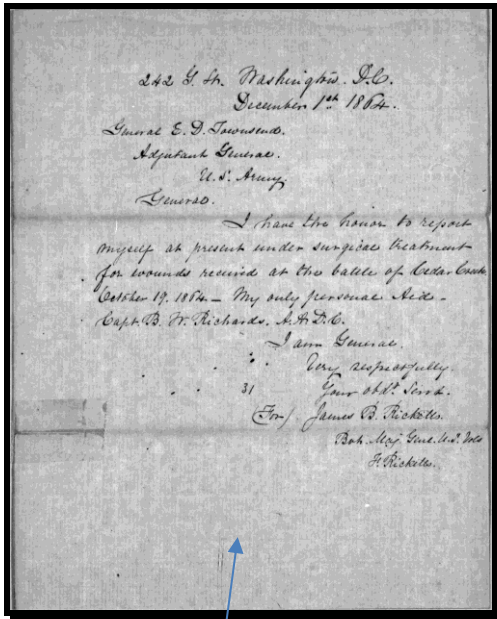 242 G. St. Washington. D.C.
December 1st 1864.
General E. D. Townsend.
Adjutant General.
U.S. Army.
General.
I have the honor to report
myself at present under surgical treatment
for wounds received at the battle of Cedar Creek
October 19. 1864. - My only personal Aid -
Capt. B. W. Richards. A.A.D.C.
I am General.
Very respectfully.
31 Your obdt. Servt.
(For) James B. Ricketts.
Bvt. Maj. Genl. U.S. Vols
F. Ricketts.